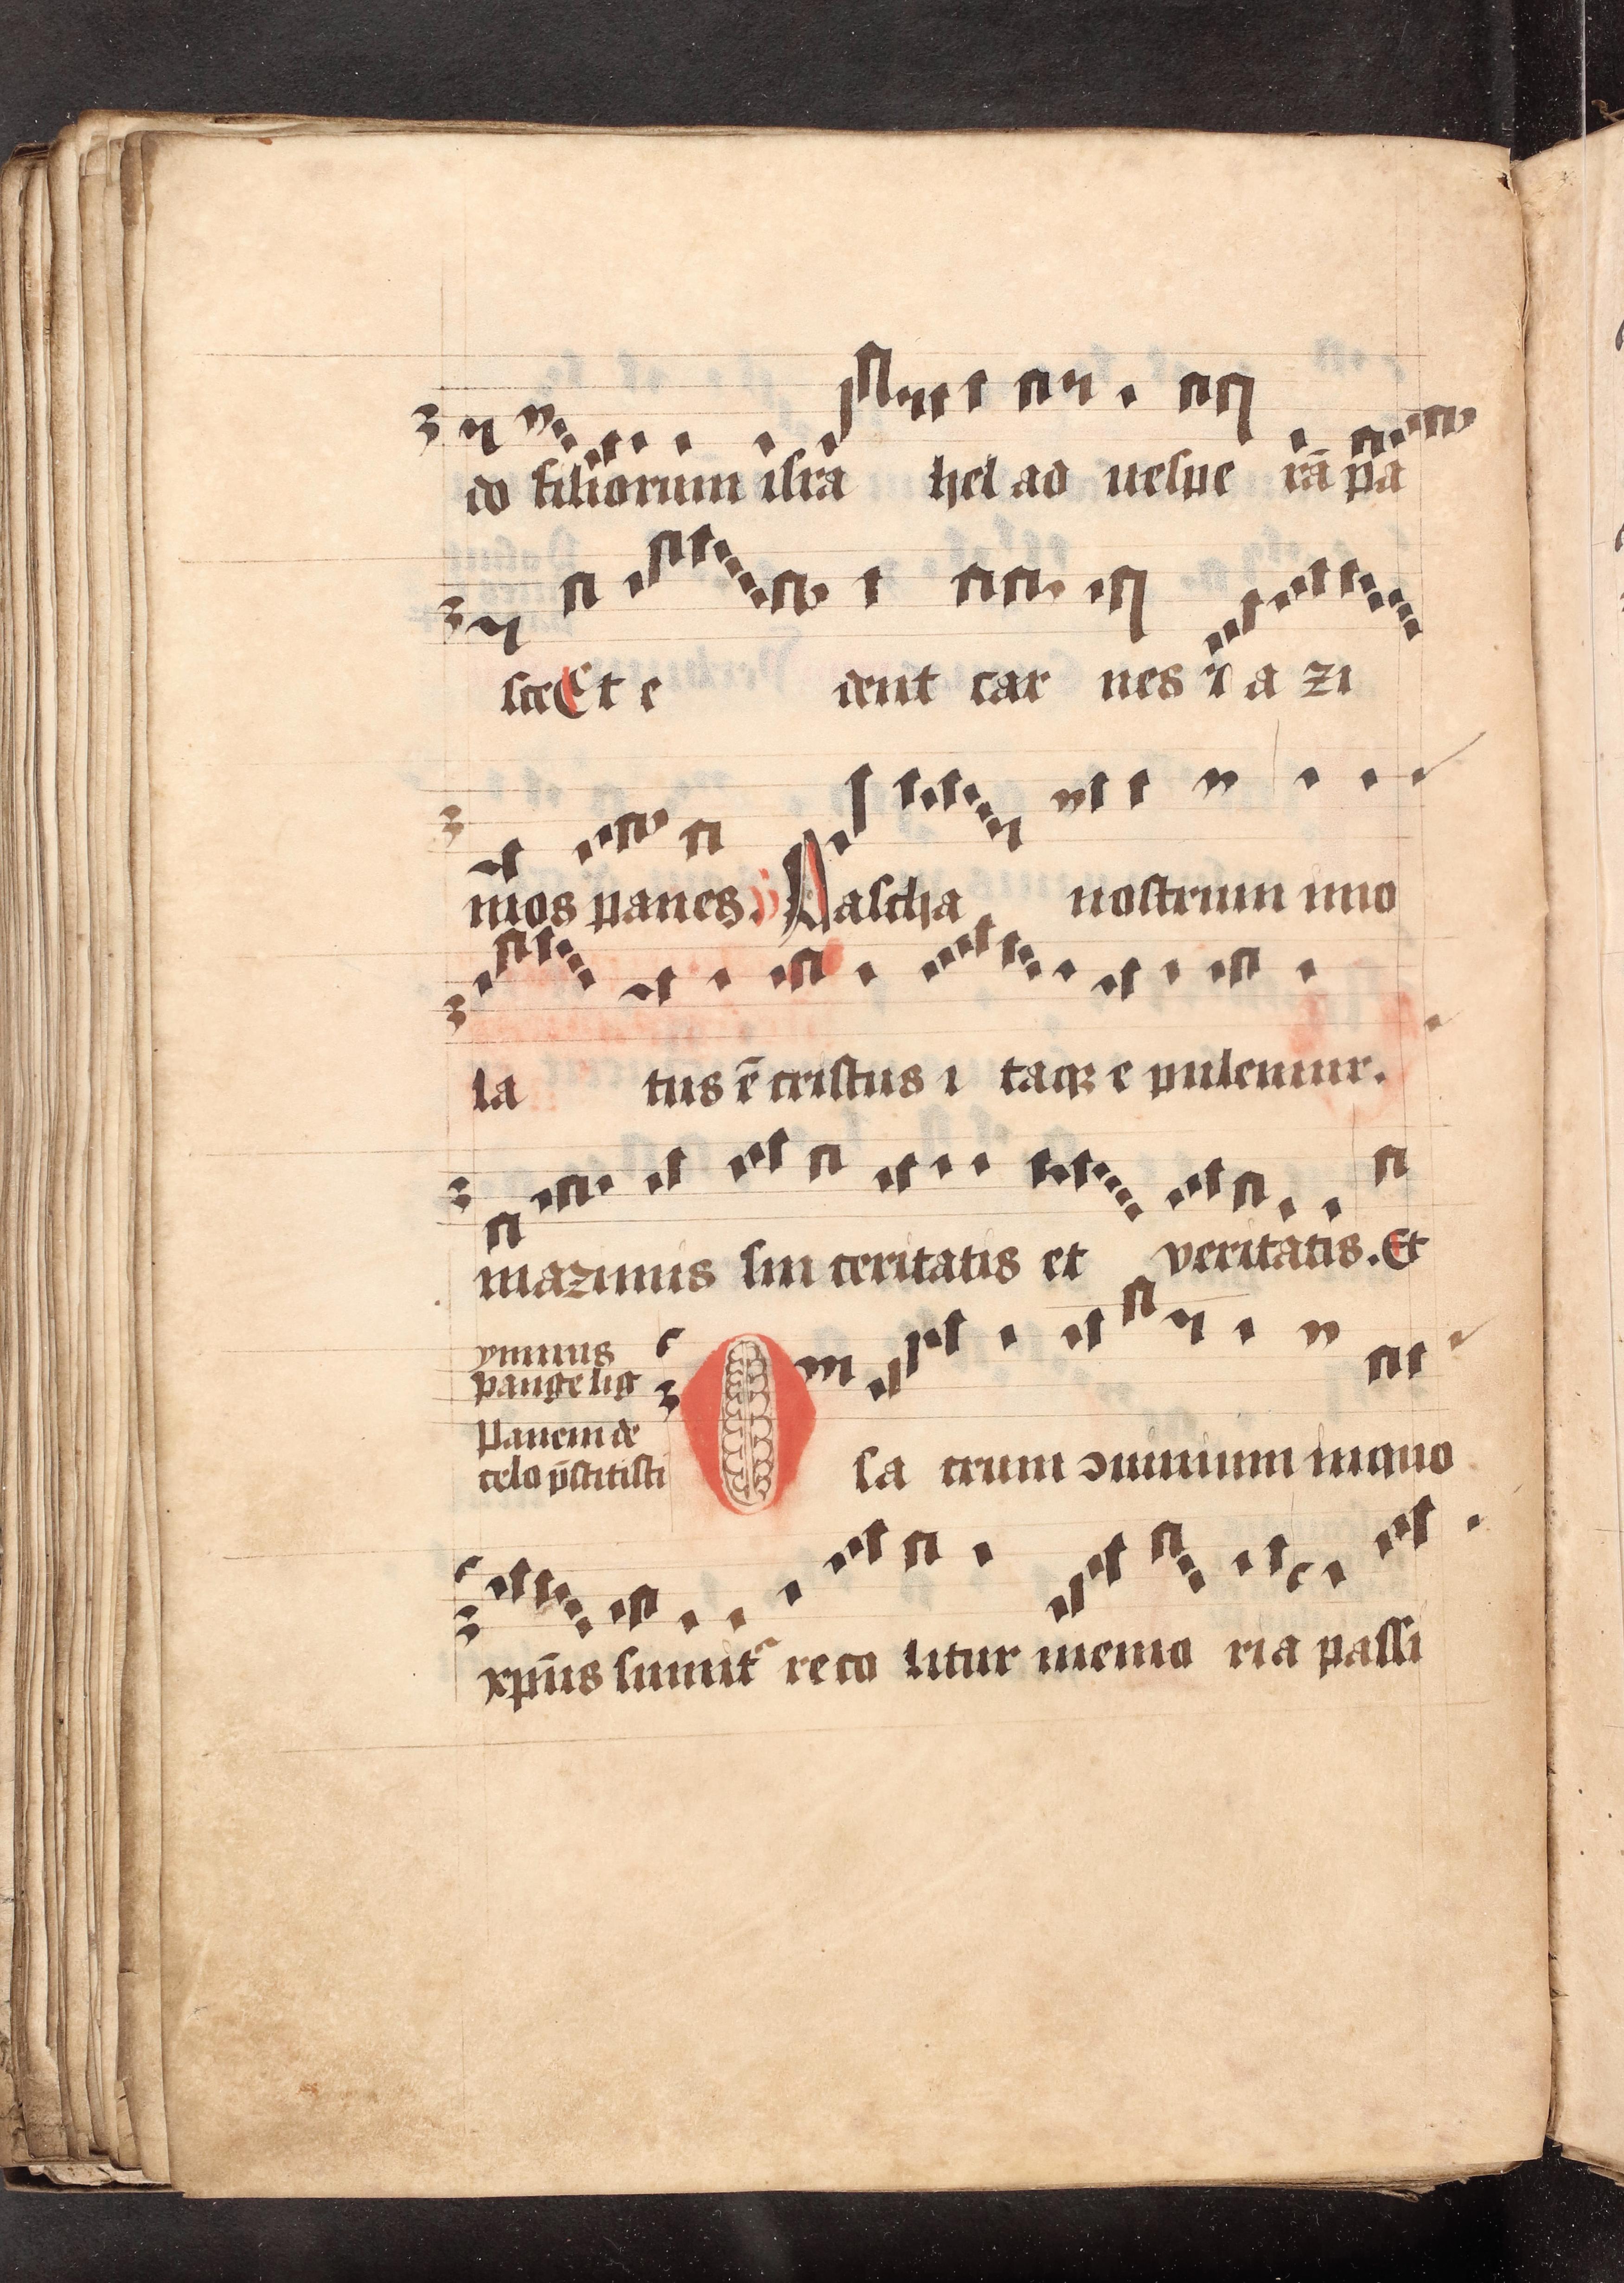 do filioꝛum iſra hel ad ueſpe rā pa
ſce Et e dent car nes ⁊ a zi
mos panes. Paſcha noſtrum imo
la tus ē criſtus i taqꝫ e pulemur.
mazimis ſin ceritatis et veritatis. Et
ymnus
pange lig
Panem de
celo p̄ſtitiſti
O ſa crum ↄuiuium in quo
xp̄us ſumit᷑ reco litur memo ria paſſi